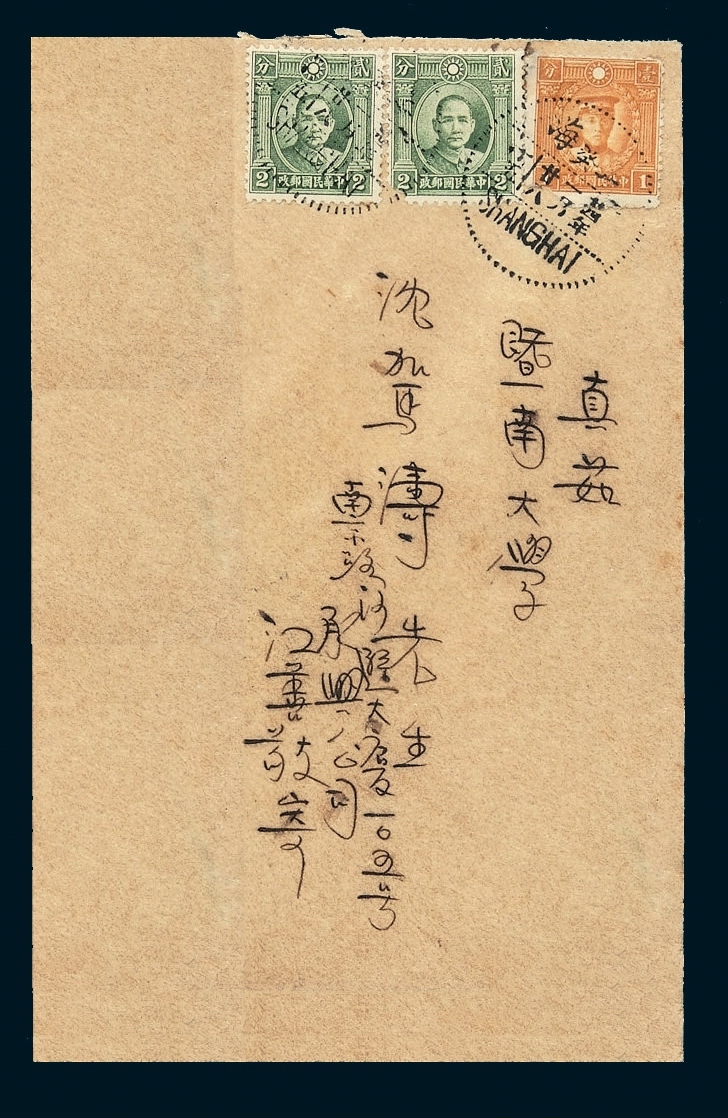 貳分
中華民國郵政
2 2
貳分
中華民國郵政
2 2
壹分
中華民國郵政
1
海
SHANGHAI
真茹
暨南大學
沈駕濤先生
南京路 大廈一〇四號
公司
江 寄